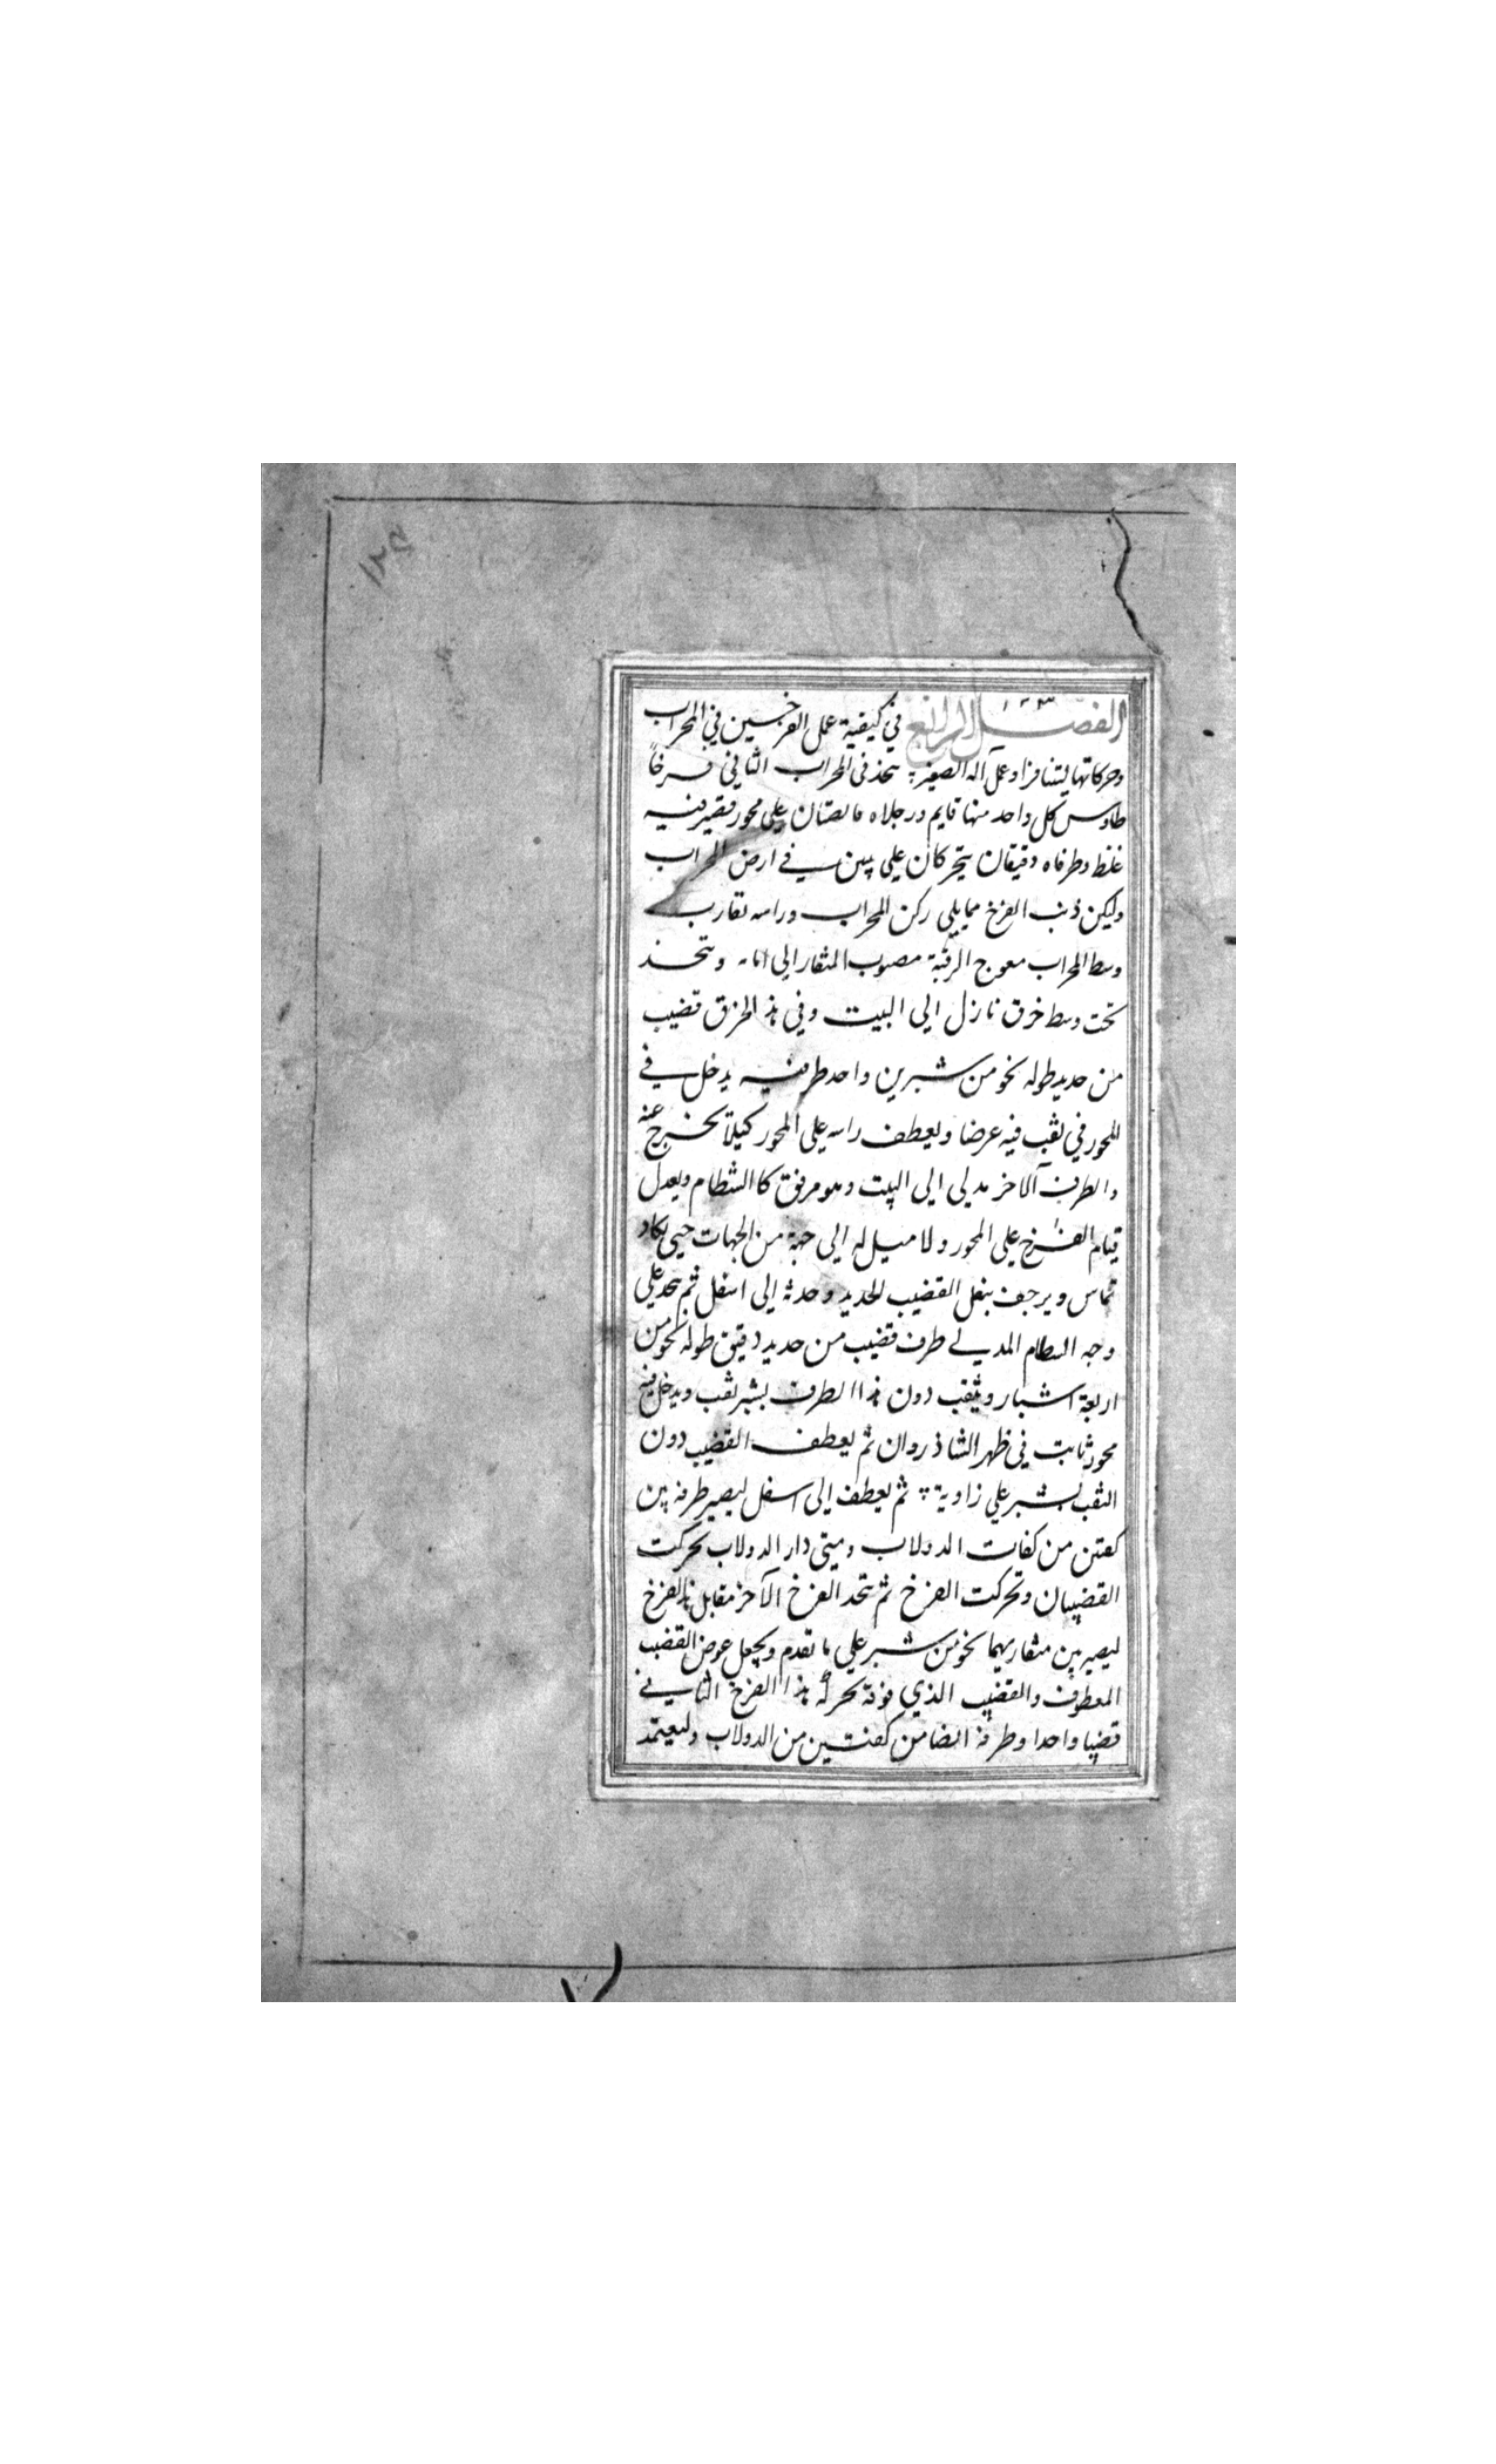 ١٢٤
١٢٣
الفصل الرابع في كيفية عمل الفرخين في المحراب
وحركاتها ليتنافزا وعمل آلة الصغير يتخذ في المحراب الثاني فرخا
طاوس كل واحد منها قايم ورجلاه ملصقتان على محور قصير فيه
غلظ وطرفاه دقيقان يتحركان على بيتين في ارض المحراب
وليكن ذنب الفرخ مما يلي ركن المحراب وراسه تقارب
وسط المحراب معوج الرقبة مصوب المنقار الى امامه ويتخذ
تحت وسط خرق نازل الى البيت وفي هذا الخرق قضيب
من حديد طوله نحو من شبرين واحد طرفيه يدخل في
المحور في نقب فيه عرضا ويعطف راسه على المحور كيلا يخرج عنه
والطرف الآخر مدلى الى البيت وهو مرفق كالشطام ويعدل
قيام الفرخ على المحور ولا ميل له الى جهة من الجهات حتى يكاد
تماس ويرجف بنقل القضيب الحديد وحدثه الى اسفل ثم يتخذ على
وجه السطام المدلى طرف قضيب من حديد دقيق طوله نحو من
اربعة اشبار ويثقب دون هذا الطرف بشبر نقب ويدخل فيه
محور ثابت في ظهر الشاذروان ثم يعطف القضيب دون
الثقب بشبر على زاوية ثم يعطف الى اسفل ليصير طرفه بين
كفتين من كفات الدولاب ومتى دار الدولاب تحركت
القضيبان وتحركت الفرخ ثم يتخذ الفرخ الآخر مقابل هذا الفرخ
ليصير بين منقاريهما نحو من شبر على ما تقدم ويجعل عوض القضيب
المعطوف والقضيب الذي فوقه يحركه هذا الفرخ الثاني
قضيبا واحدا وطرفه ايضا من كفتين من الدولاب وليعتمد